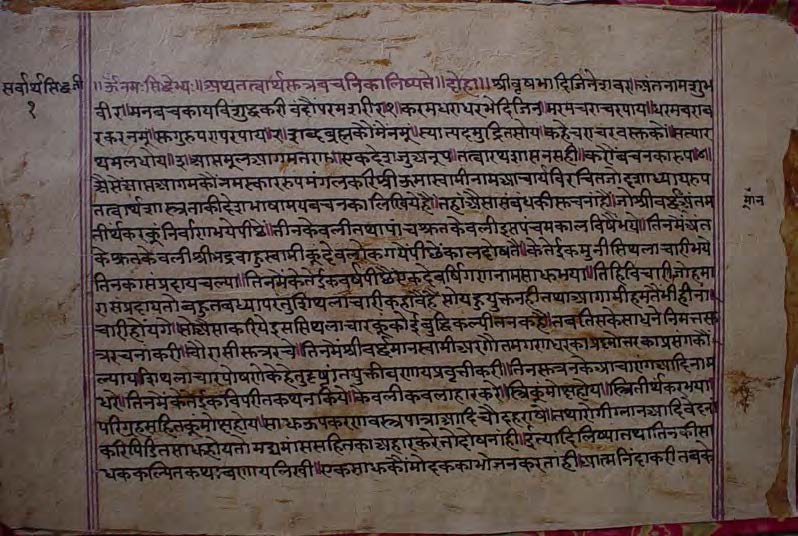 सर्वार्थसिद्धी
१
॥ऊँनमःसिद्धेभ्यः॥अथतत्वार्थसूत्रवचनिकालिष्यते॥दोहा॥श्रीवृषभादिजिनेशवर॥अंतनामशुभ
वीर॥मनवचकायविशुद्धकरी॥वंदौंपरमशरीर॥१॥करमधराधरभेदिजिन॥मरमचराचरपाय॥धरमवराव
रकरनमू॥सुगुरुपरापरपाय॥२॥शब्दब्रह्मकौंमैनमू॥स्यात्पदमुद्रितसोय॥कहैचराचरवस्तुकौं॥सत्यार
थमलधोय॥३॥आप्तमूलआगमतरा॥एकदेशजुअनूप॥तत्वारथशासनसही॥करौंवचनकारूप॥४॥
अैसेंआप्तआगमकौंनमस्काररुपमंगलकरिश्रीऊमास्वामीनामआचार्यविरचितजोदशाध्यायरुप
तत्वार्थशास्त्रताकीदेशभाषामयवचनकालिखियेहै॥तहांअैसासंबंधकीसूचनाहै॥जोश्रीवर्द्धमानअंतम
तीर्थकरकूंनिर्वाणभयेपीछैं॥तीनकेवलीतथापाचश्रुतकेवलीइसपंचमकालविषैंभये॥तिनमेंअंत
केश्रुतकेवलीश्रीभद्रबाहुस्वामीकूंदेवलोकगयेंपीछैंकालदोषतैं॥केतेईकमुनीसिथलाचारीभये
तिनकासंप्रदायचल्या॥तिनमेंकेतेईकवर्षपीछैंएकदेवर्धिगणनामसाधुभया॥तिहिविचारीजोहमा
रासंप्रदायतोबहुतबध्यापरंतुशिथलाचारीकहावैहै॥सोयहुयुक्तनहीतथाआगामीहमतैंभीहीनां
चारीहोयगे॥सोअैसाकरियेइससिथलाचारकूकोईबुद्धिकल्पीतनकहै॥तबतिसकेसाधनेनिमत्तसू
त्ररचनांकरी॥चौरासीसूत्ररचे॥तिनमेंश्रीवर्द्धमानस्वामीअरगोतमगणधरकाप्रश्नोत्तरकाप्रसंगकौं
ल्यायशिथलाचारपोषणेकेहेतुदृष्टांतयुक्तीवणायप्रवृत्तीकरी॥तिनसूत्रनकेआचारंगआदिनाम
धरे॥तिनमेंकेतेईकविपरीतकथनकिये॥केवलीकवलाहारकरे॥स्त्रिकूंमोक्षहोय॥स्त्रितीर्थकरभया
परिग्रहसहितकूमोक्षहोय॥साधूऊपकरणवस्त्रपात्राआदिचौदहराषे॥तथारोगीग्लानआदिवेदनां
करिपिडितसाधूहोयतोमद्यमांससहितकाअहारकरेतोदोषनाही॥इत्यादिलिष्यातथातिनकीसा
धककल्पितकथःबणायलिखी॥एकसाधूकौंमोदककाभोजनकरतांही॥आत्मनिंदाकरीतबके